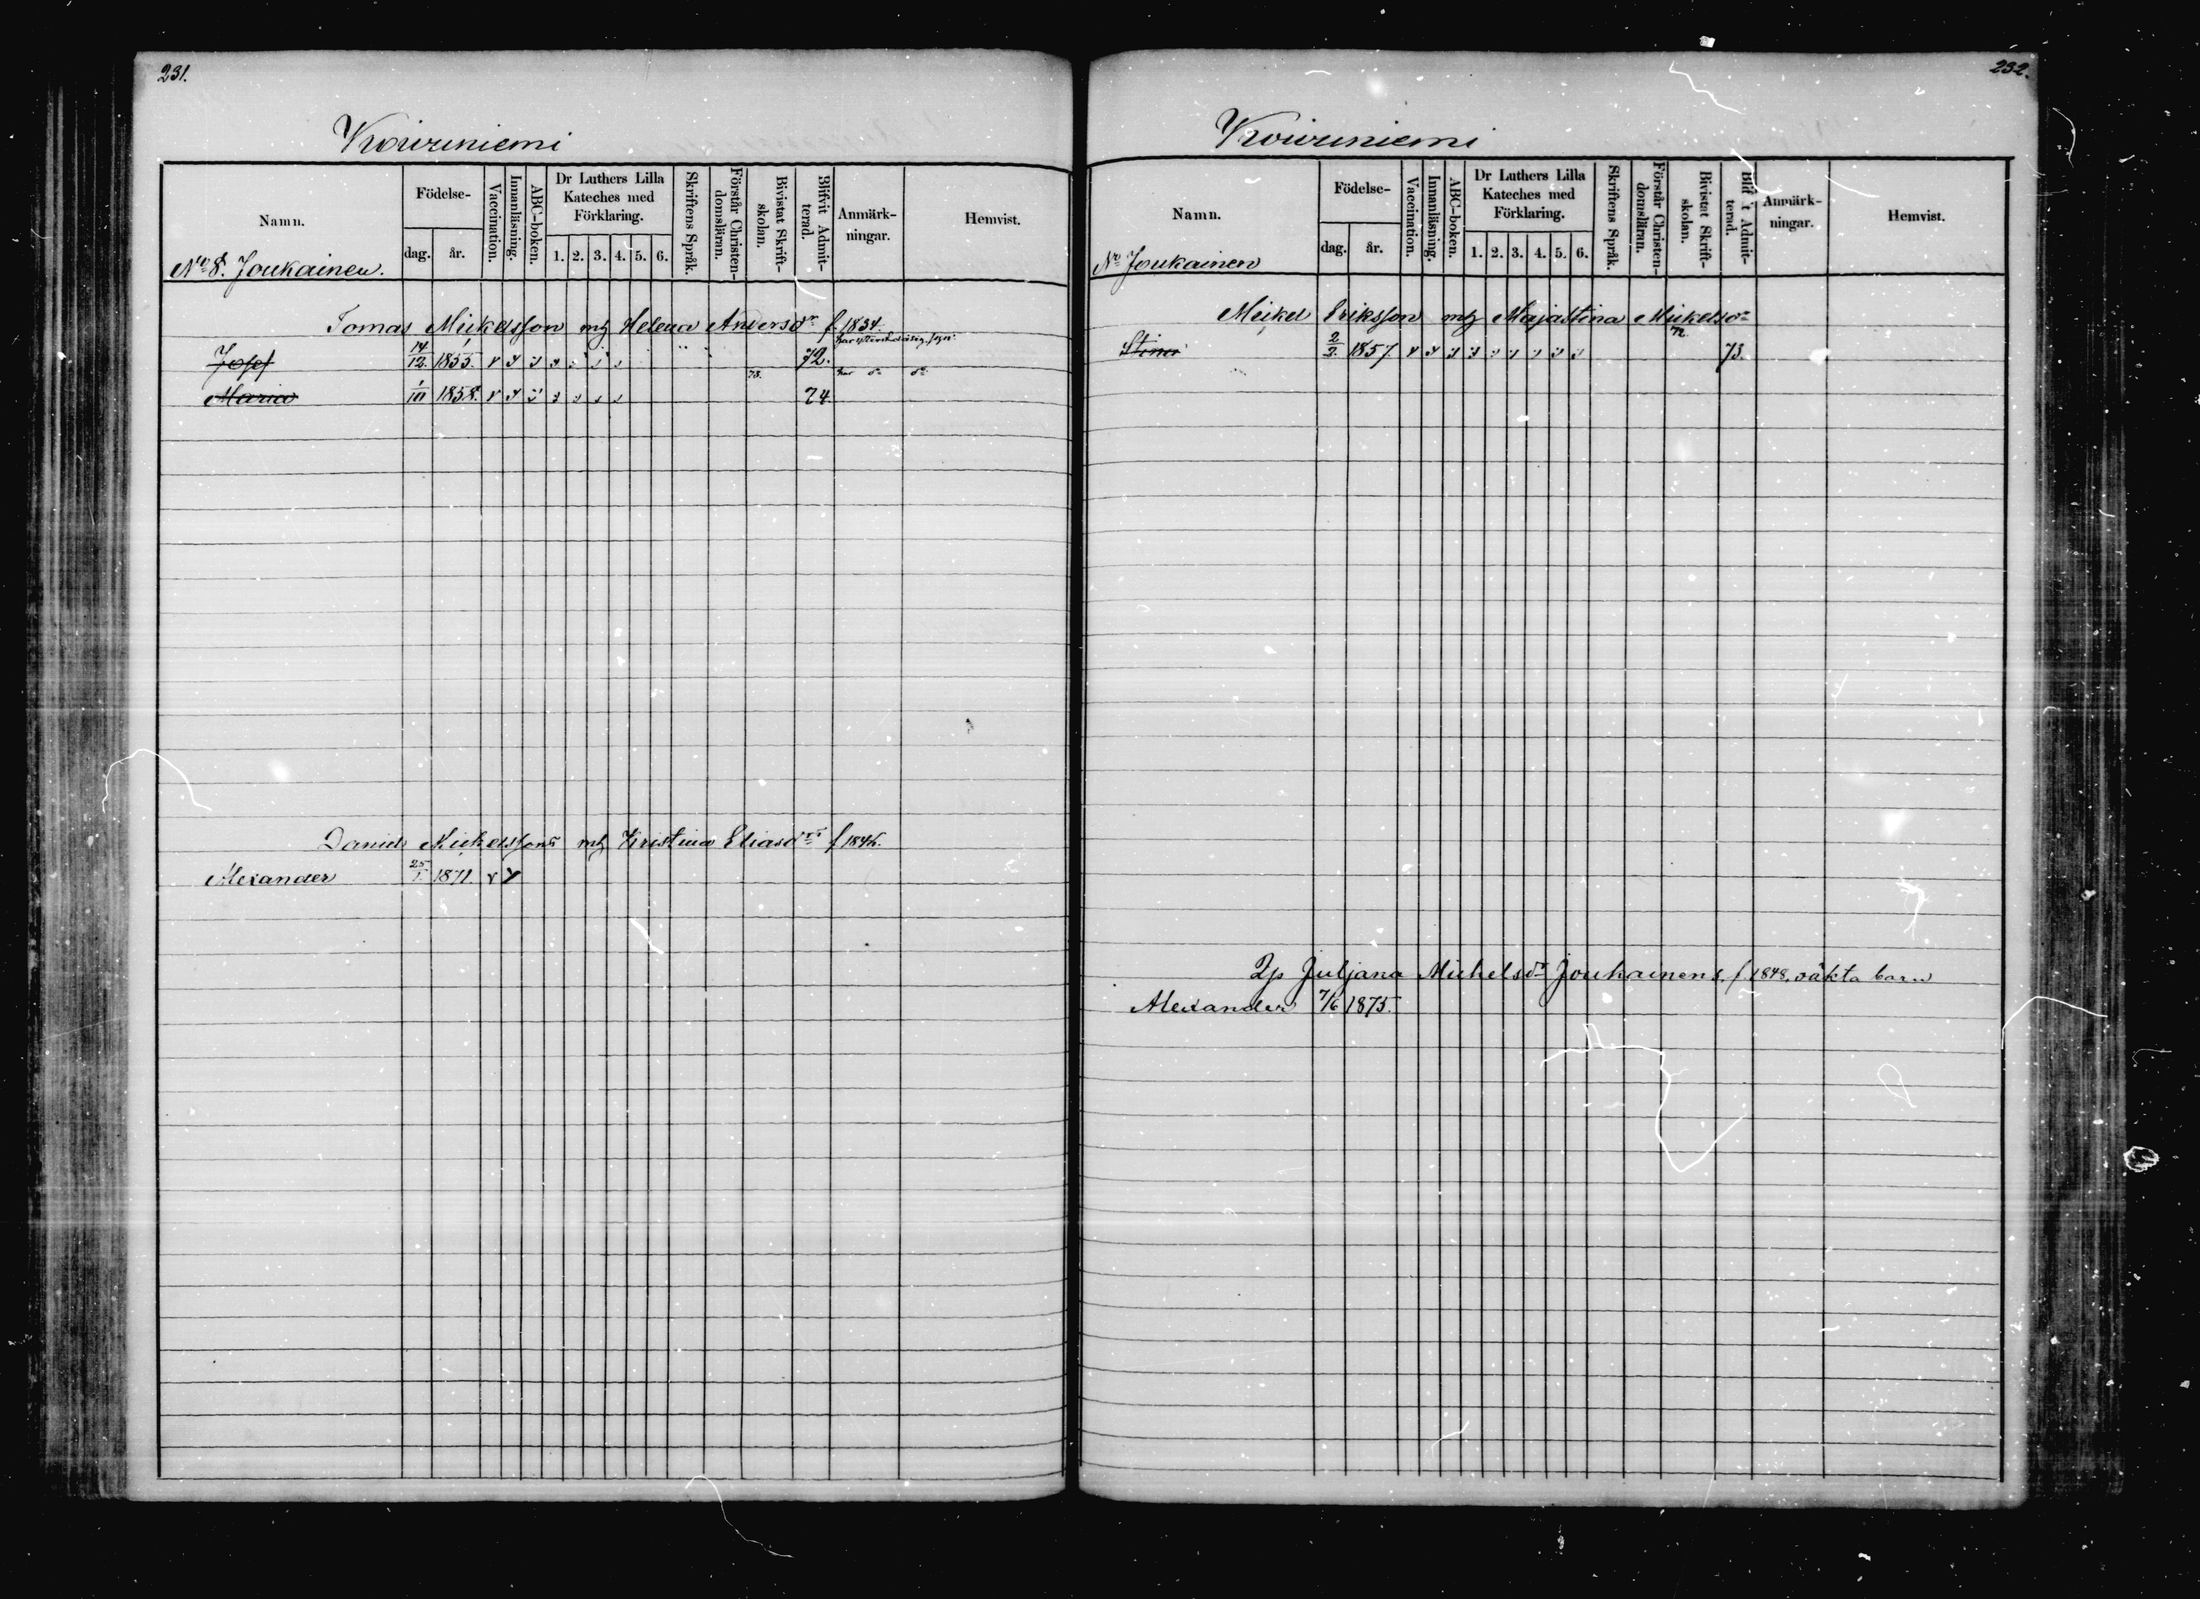 231.
Koiruniemi
Namn.
Födelse-
dag.
år.
Vaccination.
Innanläsning.
ABC-boken.
Dr Luthers Lilla Kateches med Förklaring.
1. 2. 3. 4. 5. 6.
Skriftens Språk.
Förstår Christendomsläran.
Bivistat Skriftskolan.
Blifvit Admitterad.
Anmärkningar.
Hemvist.
No 8. Joukainen.
Tomas Mickelsson m h Helena Andersdr f. 1834.
Josef 14/12 1855. 72.
Maria 1/10 1858. 73. 74.
Daniels Mickelssons m h Kristina Eliasdrs f
Alexander 25/1 1871.
232.
Koiruniemi
Namn.
Födelse-
dag.
år.
Vaccination.
Innanläsning.
ABC-boken.
Dr Luthers Lilla Kateches med Förklaring.
1. 2. 3. 4. 5. 6.
Skriftens Språk.
Förstår Christendomsläran.
Bivistat Skriftskolan.
Blifvit Admitterad.
Anmärkningar.
Hemvist.
No Joukainen
Mickel Eriksson m h Majastina Mickelsdr
Stina 2/2 1857 72 73.
Juljana Michelsdr Jouhainens f. 1848, oäkta barn
Alexander 7/6 1875.